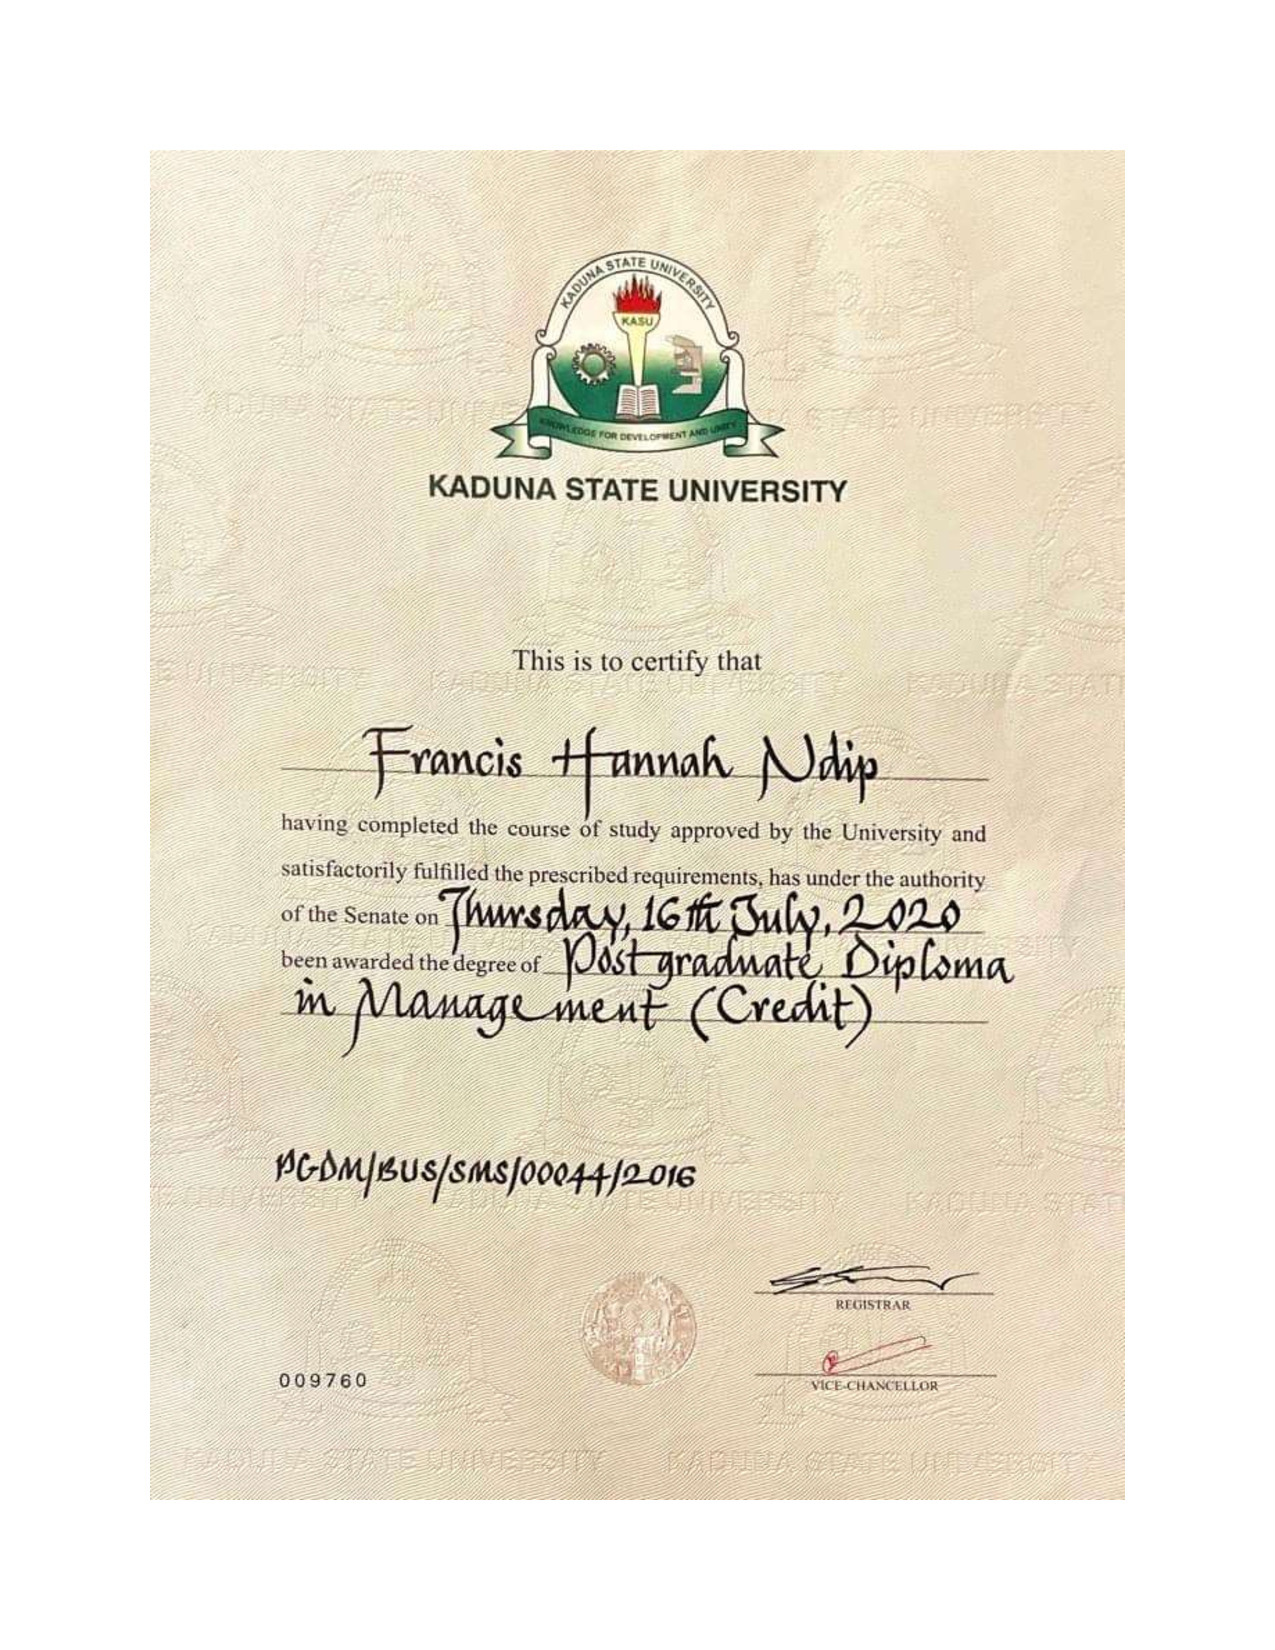 KADUNA STATE UNIVERSITY
KASU
KNOWLEDGE FOR DEVELOPMENT AND UNITY
KADUNA STATE UNIVERSITY
This is to certify that
Francis Hannah Ndip
having completed the course of study approved by the University and
satisfactorily fulfilled the prescribed requirements, has under the authority
of the Senate on Thursday, 16th July, 2020
been awarded the degree of Postgraduate Diploma
in Management (Credit)
PGDM/BUS/SMS/00044/2016
REGISTRAR
009760
VICE-CHANCELLOR